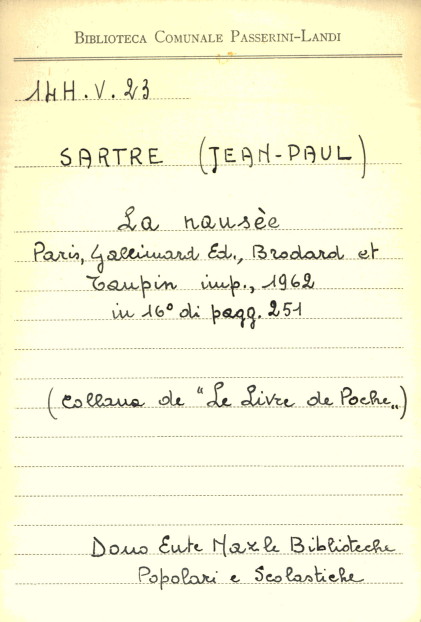 BIBLIOTECA COMUNALE PASSERINI-LANDI
14H.V.23
SARTRE (JEAN-PAUL)
La nausèe
Paris, Gallimard Ed., Brodard et
Taupin imp., 1962
in 16° di pagg. 251
(Collana de "Le Livre de Poche„)
Dono Ente Naz.le Biblioteche
Popolari e Scolastiche